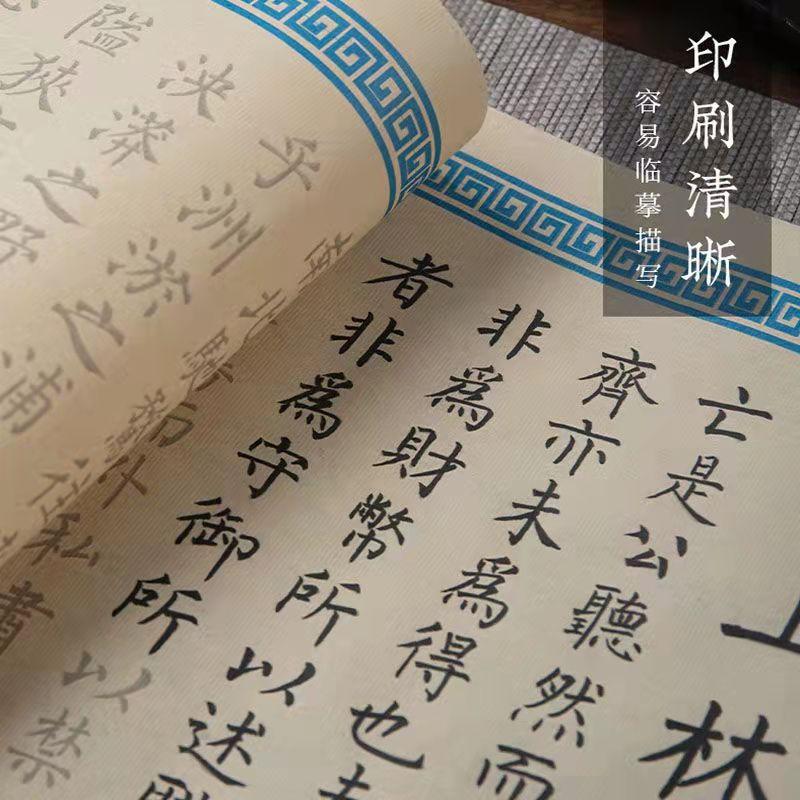 印刷清晰
容易临摹描写
林
亡是公聽然而
齊亦未爲得也
非爲財幣所以述
者非爲守御所以禁
私肅
乎洲淤之浦
泱漭之野
隘狹